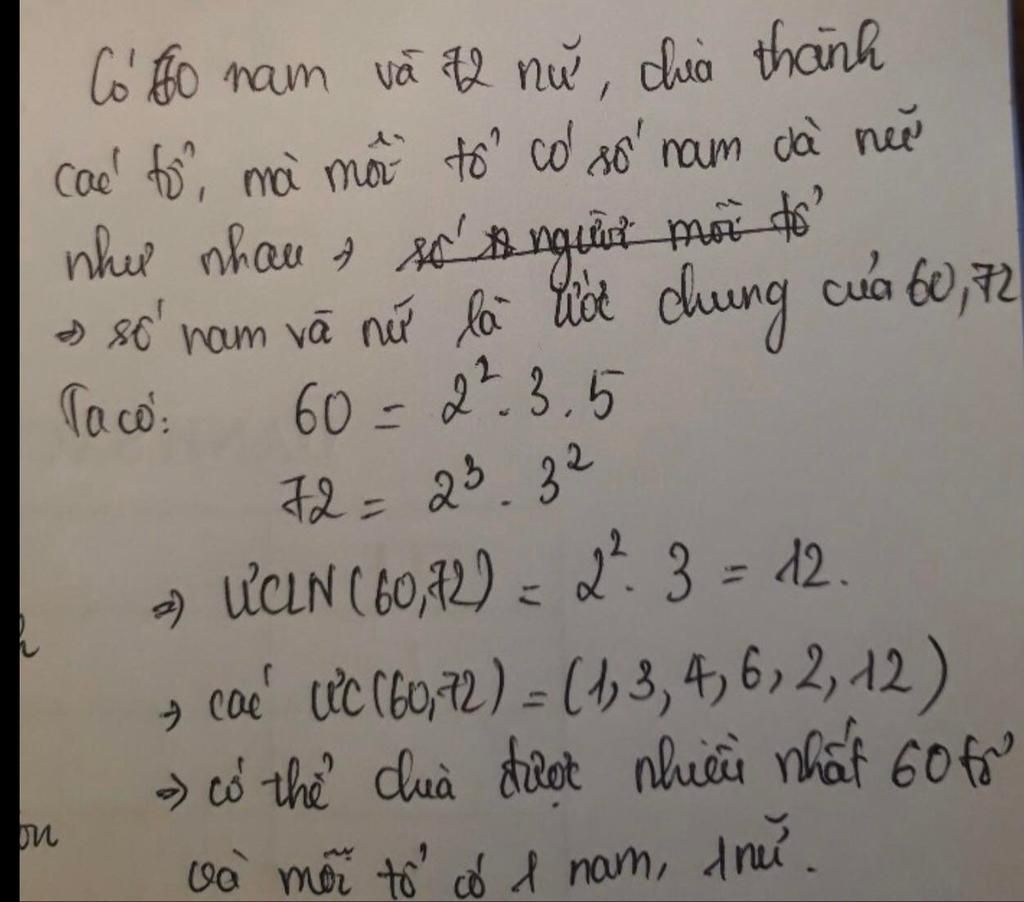 Có 60 nam và 72 nữ, chia thành
các tổ, mà mỗi tổ có số nam và nữ
như nhau → số n người mỗi tổ
⇒ số nam và nữ là ước chung của 60,72
Ta có: 60 = 2². 3. 5
72 = 2³. 3²
⇒ ƯCLN(60,72) = 2². 3 = 12.
→ các ƯC(60,72) = (1, 3, 4, 6, 2, 12)
⇒ có thể chia được nhiều nhất 60 tổ
và mỗi tổ có 1 nam, 1 nữ.